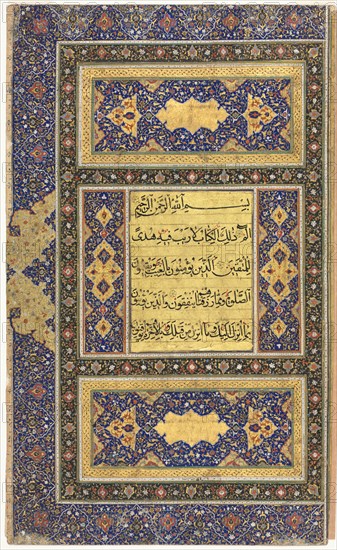 بسم الله الرحمن الرحیم
الم ذلك الكتاب لا ريب فيه هدى
للمتقين الذين يؤمنون بالغيب ويقيمون
الصلوة ومما رزقناهم ينفقون والذين يؤمنون
بما انزل اليك وما انزل من قبلك وبالآخرة هم يوقنون